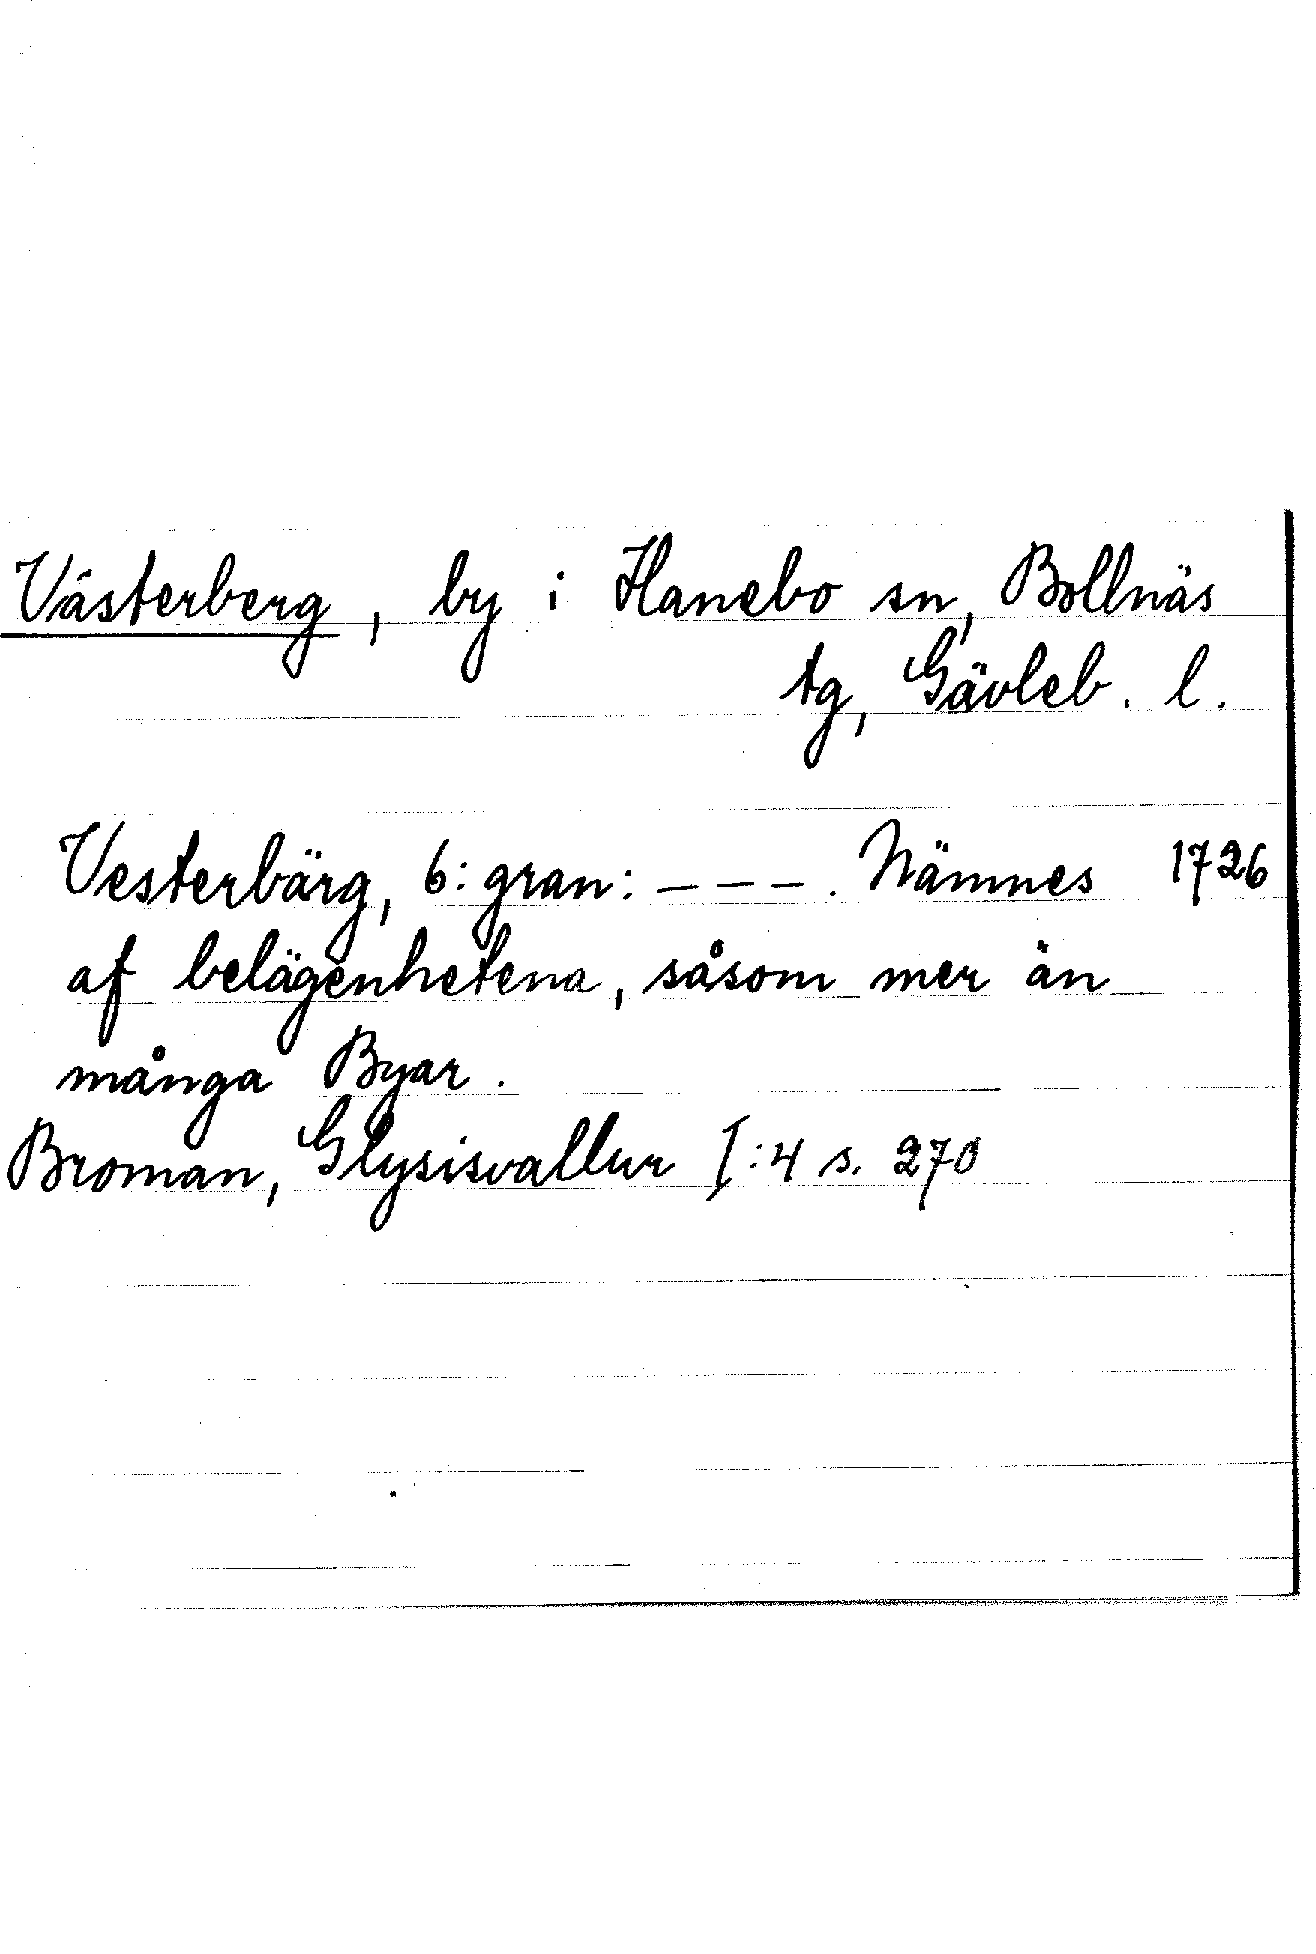 Västerberg, by i Hanebo sn, Bollnäs
tg, Gävleb. l.
Vesterbärg, 6: gran: – – – . Nämnes 1726
af belägenhetena, såsom mer än
många Byar.
Broman, Glysisvallur I:4 s. 270